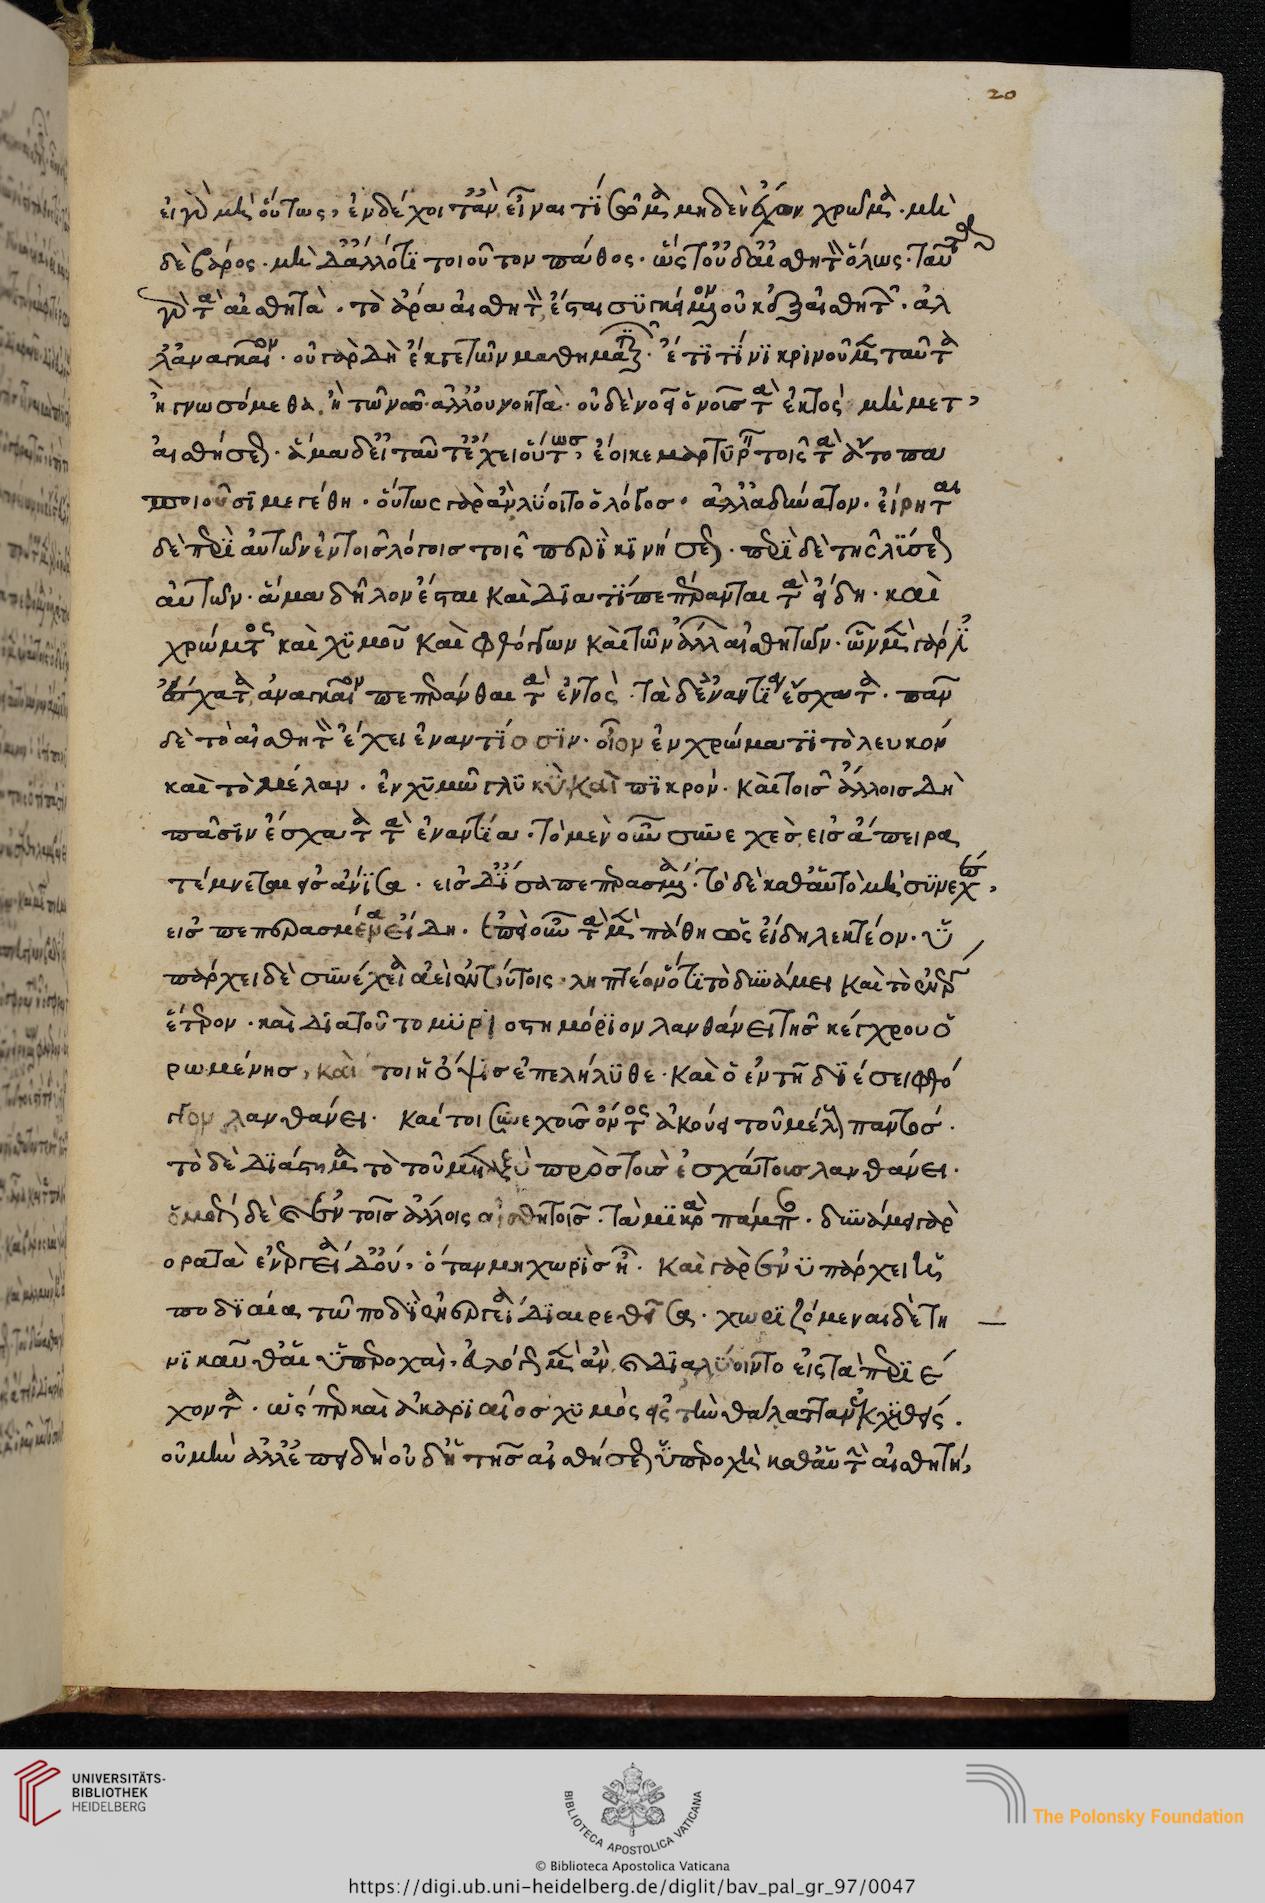 20
εἰ γὰρ μὴ οὕτως, ἐνδέχοιτ' ἂν εἶναί τι σῶμα μηδὲν ἔχον χρῶμα· μὴ
δὲ βάρος· μὴ δ' ἄλλό τι τοιοῦτον πάθος· ὥστ' οὐδ' αἰσθητὸν ὅλως· ταῦτα
γὰρ τὰ αἰσθητὰ· τὸ ἄρα αἰσθητὸν ἔσται συγκείμενον οὐκ ἐξ αἰσθητῶν· ἀλ
λ' ἀναγκαῖον· οὐ γὰρ δὴ ἔκ γε τῶν μαθηματικῶν· ἔτι τίνι κρινοῦμεν ταῦτα
ἢ γνωσόμεθα, ἢ τῷ νῷ· ἀλλ' οὐ νοητὰ· οὐδὲ νοεῖ ὁ νοῦς τὰ ἐκτὸς μὴ μετ'
αἰσθήσεως· ἅμα δ' εἰ ταῦτ' ἔχει οὕτως, ἔοικε μαρτυρεῖν τοῖς τὰ ἄτομα
ποιοῦσι μεγέθη· οὕτως γὰρ ἂν λύοιτο ὁ λόγος· ἀλλ' ἀδύνατον· εἴρηται
δὲ περὶ αὐτῶν ἐν τοῖς λόγοις τοῖς περὶ κινήσεως· περὶ δὲ τῆς λύσεως
αὐτῶν· ἅμα δῆλον ἔσται καὶ διατί πεπέρανται τὰ εἴδη· καὶ
χρώματος καὶ χυμοῦ καὶ φθόγγων καὶ τῶν ἄλλων αἰσθητῶν· ὧν μὲν γάρ ἐστιν
ἔσχατα, ἀναγκαῖον πεπεράνθαι τὰ ἐντὸς· τὰ δ' ἐναντία ἔσχατα· πᾶν
δὲ τὸ αἰσθητὸν ἔχει ἐναντίωσιν· οἷον ἐν χρώματι τὸ λευκὸν
καὶ τὸ μέλαν· ἐν χυμῷ γλυκὺ καὶ πικρόν· καὶ ἐν τοῖς ἄλλοις δὴ
πᾶσιν ἔσχατα τὰ ἐναντία· τὸ μὲν οὖν συνεχὲς, εἰς ἄπειρα
τέμνεται εἰς ἄνισα· εἰς δ' ἴσα πεπερασμένα· τὸ δὲ καθ' αὑτὸ μὴ συνεχὲς,
εἰς πεπερασμένα εἴδη· ἐπεὶ οὖν τὰ μὲν πάθη ὡς εἴδη λεκτέον· ὑ
πάρχει δὲ συνέχεια ἀεὶ ἐν τούτοις· ληπτέον ὅτι τὸ δυνάμει καὶ τὸ ἐνεργείᾳ
ἕτερον· καὶ διὰ τοῦτο μυριοστημόριον λανθάνει τῆς κέγχρου ὁ
ρωμένης, καίτοι ἡ ὄψις ἐπελήλυθε· καὶ ὁ ἐν τῇ διέσει φθό
γγον λανθάνει· καίτοι συνεχοῦς ὄντος ἀκούει τοῦ μέλους παντός·
τὸ δὲ διάστημα τὸ τοῦ μεταξὺ πρὸς τοῖς ἐσχάτοις λανθάνει·
ὁμοίως δὲ ἐν τοῖς ἄλλοις αἰσθητοῖς· τὰ μικρὰ πάμπαν· δυνάμει γὰρ
ὁρατὰ ἐνεργείᾳ δ' οὔ, ὅταν μὴ χωρὶς ᾖ· καὶ γὰρ ἐνυπάρχει ἡ
ποδιαία τῇ ποδὶ ἐνεργείᾳ διαιρεθεῖσα· χωριζόμεναι δὲ τη
λικαῦθ' αἱ ὑπεροχαὶ, εὐλόγως μὲν ἂν διαλύοιντο εἰς τὰ περιέ
χοντα· ὥσπερ καὶ ἀκαριαῖος χυμὸς εἰς τὴν θάλατταν ἐκχυθείς·
οὐ μὴν ἀλλ' ἐπειδὴ οὐδ' ἡ τῆς αἰσθήσεως ὑπεροχὴ καθ' αὑτὴν αἰσθητή,
UNIVERSITÄTS-
BIBLIOTHEK
HEIDELBERG
BIBLIOTECA APOSTOLICA VATICANA
The Polonsky Foundation
© Biblioteca Apostolica Vaticana
https://digi.ub.uni-heidelberg.de/diglit/bav_pal_gr_97/0047